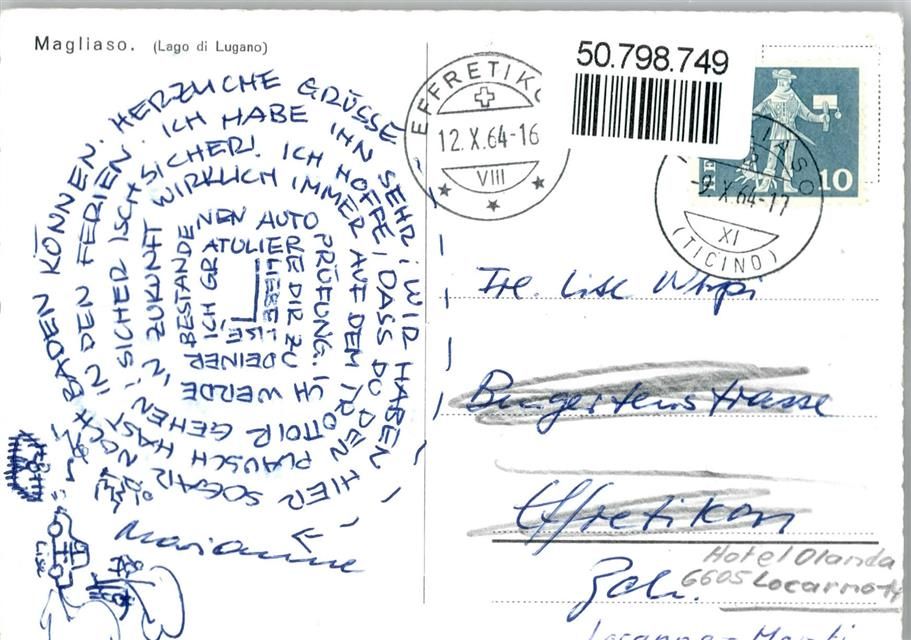 Magliaso. (Lago di Lugano)
LIEBE LISE
ICH GRATULIERE DIR ZU DEINER
BESTANDENEN AUTO PRÜFUNG. ICH WERDE
IN ZUKUNFT WIRKLICH IMMER AUF DEM TROTTOIR GEHEN,
SICHER ISCH SICHER! ICH HOFFE, DASS DU DEN PLAUSCH HAST
IN DEN FERIEN. ICH HABE IHN SEHR; WIR HABEN HIER SOGAR NOCH
BADEN KÖNNEN. HERZLICHE GRÜSSE
Marianne
LISE
EFFRETIKO
12.X.64-16
VIII
50.798.749
10
-9.X.64-17
XI
(TICINO)
Frl. Lise
Effretikon
Zch.
Hotel Olanda
6605 Locarno